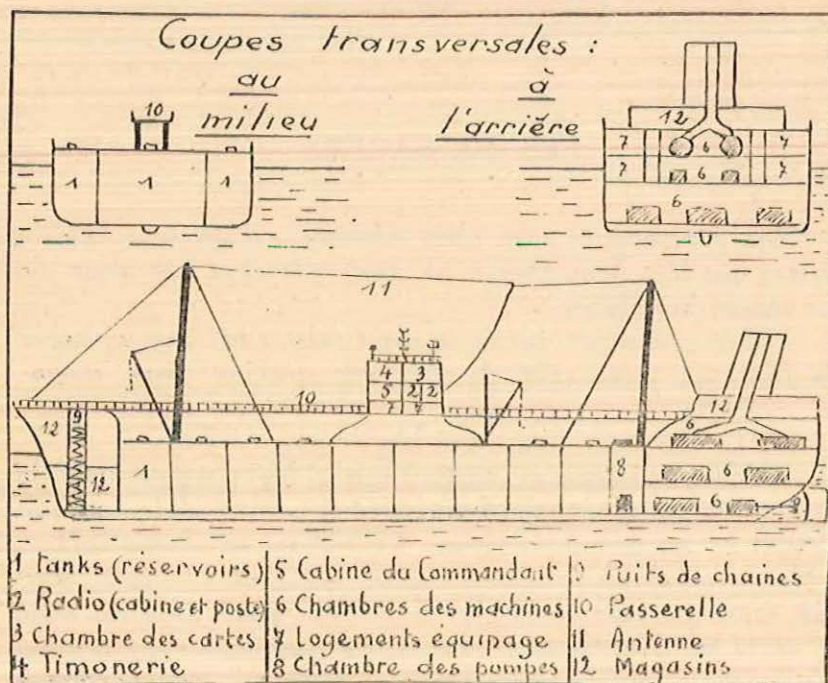 Coupes transversales :
au
milieu
à
l'arrière
10
1 1 1
12
7 6 7
7 6 7
6
11
4 3
5 2 2
7 7
10
12 9
12
1
8
12
6
6
6
1 Tanks (réservoirs)
2 Radio (cabine et poste)
3 Chambre des cartes
4 Timonerie
5 Cabine du Commandant
6 Chambres des machines
7 Logements équipage
8 Chambre des pompes
9 Puits de chaines
10 Passerelle
11 Antenne
12 Magasins